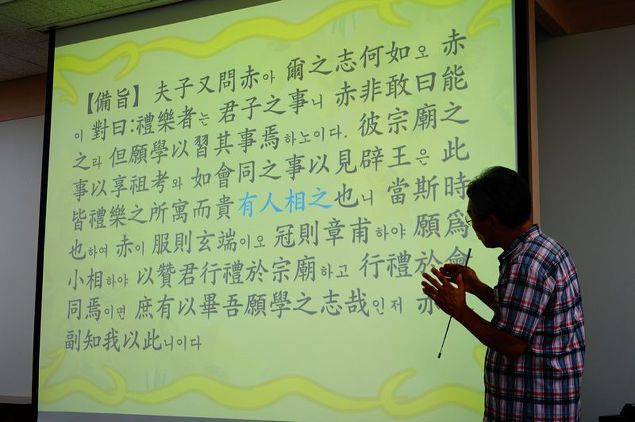 【備旨】 夫子又問赤아 爾之志何如오 赤
이 對曰:禮樂者는 君子之事니 赤非敢曰能
之라 但願學以習其事焉하노이다. 彼宗廟之
事以享祖考와 如會同之事以見辟王은 此
皆禮樂之所寓而貴有人相之也니 當斯時
也하여 赤이 服則玄端이오 冠則章甫하야 願爲
小相하야 以贊君行禮於宗廟하고 行禮於會
同焉이면 庶有以畢吾願學之志哉인저
副知我以此니이다